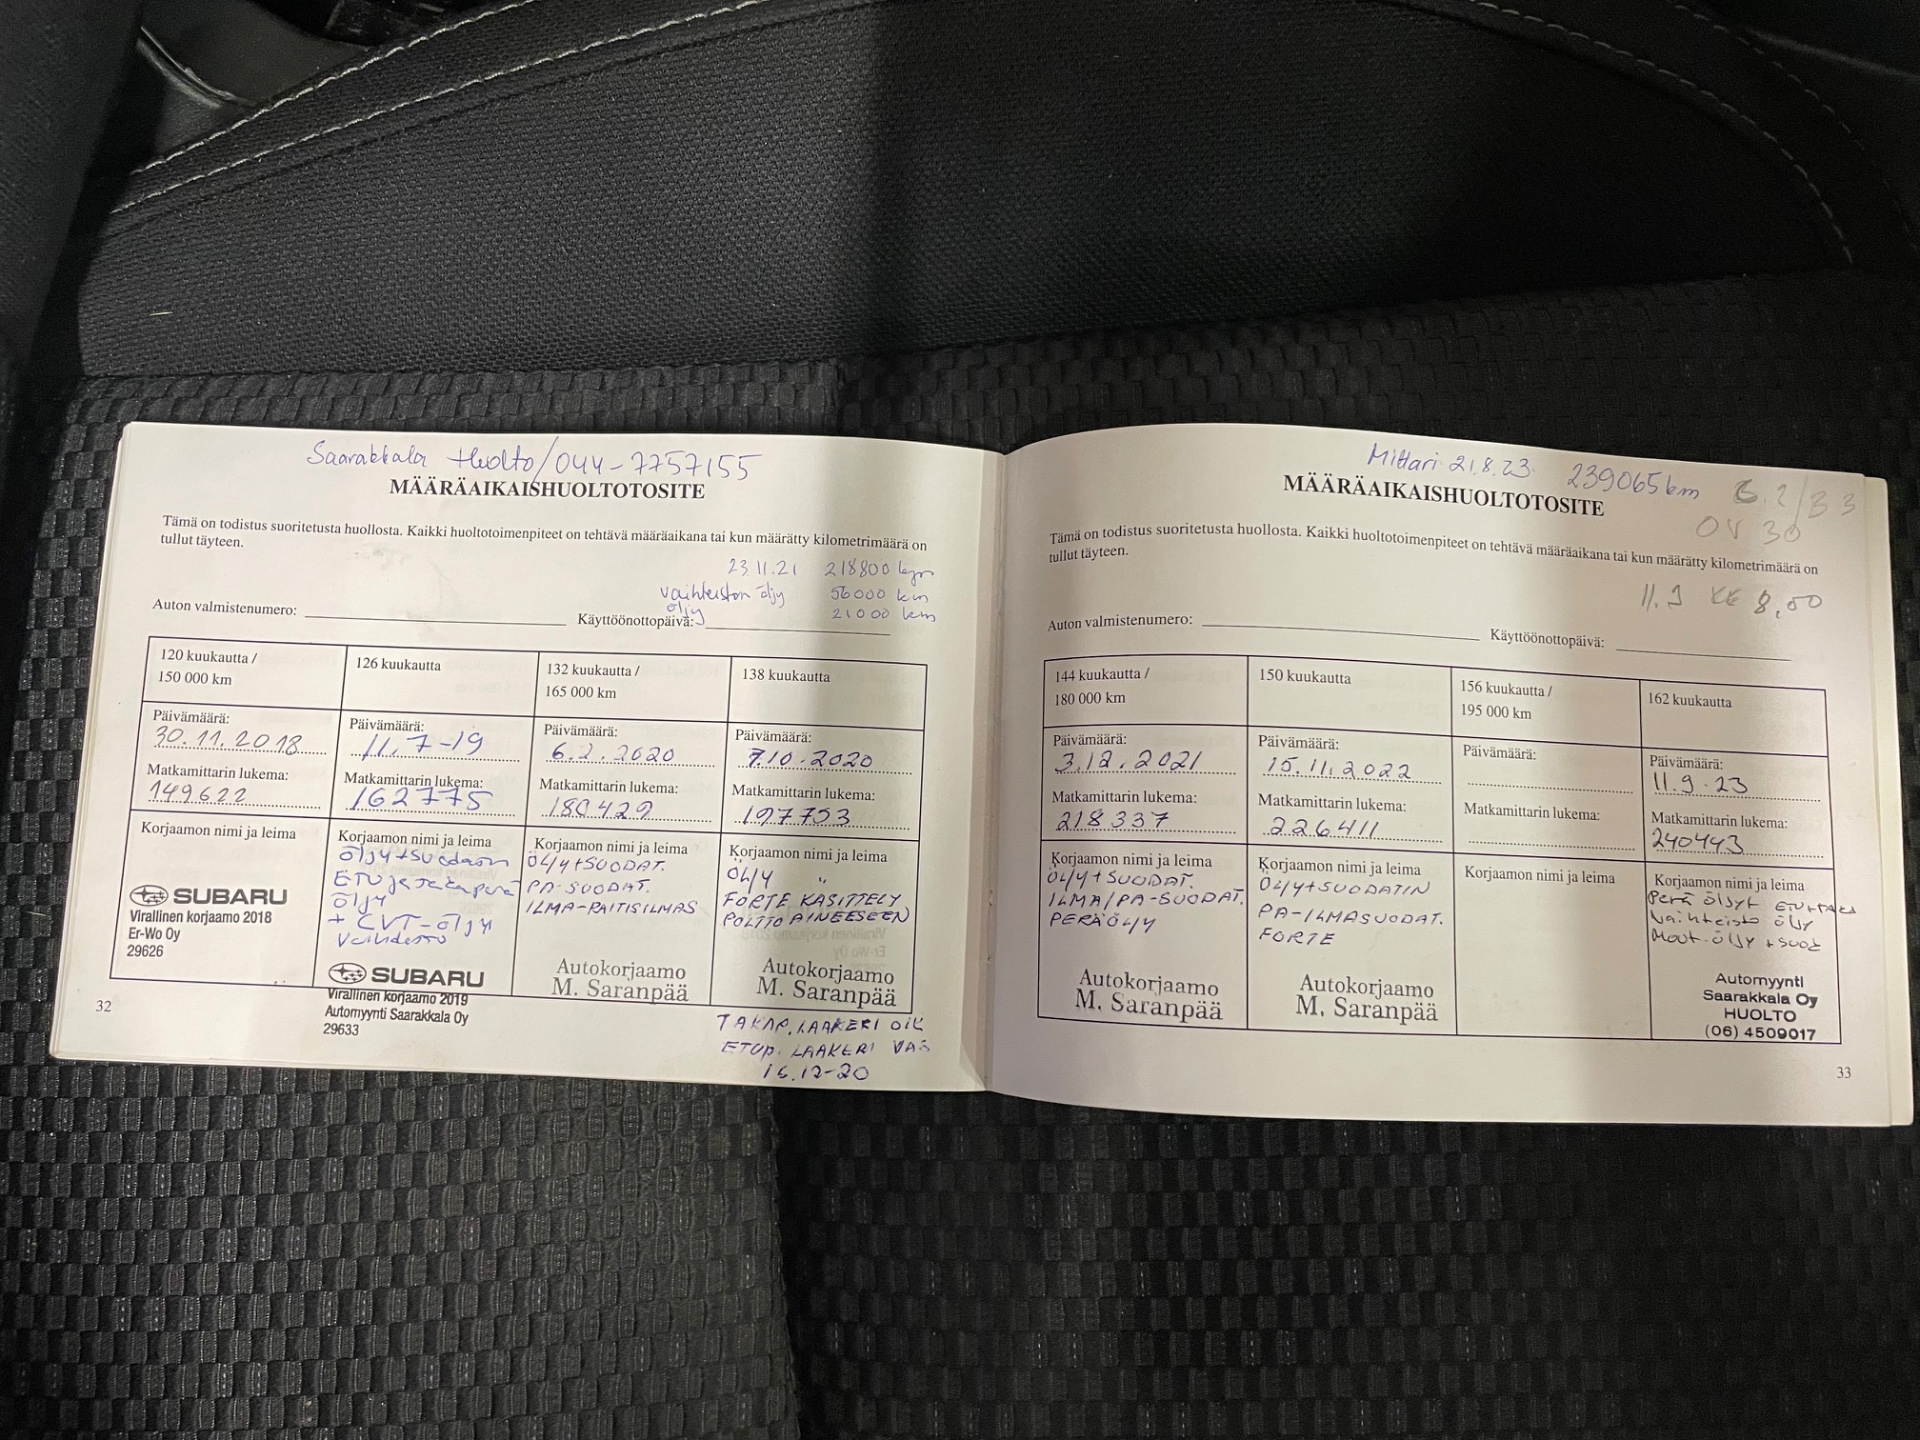 Saarakkala Huolto/044-7757155
MÄÄRÄAIKAISHUOLTOTOSITE
Tämä on todistus suoritetusta huollosta. Kaikki huoltotoimenpiteet on tehtävä määräaikana tai kun määrätty kilometrimäärä on
tullut täyteen.
23.11.21 218800 km
vaihteiston öljy 56000 km
öljy 21000 km
Auton valmistenumero: Käyttöönottopäivä:
120 kuukautta /
150 000 km
Päivämäärä:
30.11.2018
Matkamittarin lukema:
149622
Korjaamon nimi ja leima
SUBARU
Virallinen korjaamo 2018
Er-Wo Oy
29626
126 kuukautta
Päivämäärä:
11.7-19
Matkamittarin lukema:
162775
Korjaamon nimi ja leima
öljy+suodatin
ETU ja taka perä
öljy
+ CVT-öljy
Vaihdettu
SUBARU
Virallinen korjaamo 2019
Automyynti Saarakkala Oy
29633
132 kuukautta /
165 000 km
Päivämäärä:
6.2.2020
Matkamittarin lukema:
180429
Korjaamon nimi ja leima
ÖLJY+SUODAT.
PA-SUODAT.
ILMA-RAITISILMAS
Autokorjaamo
M. Saranpää
138 kuukautta
Päivämäärä:
7.10.2020
Matkamittarin lukema:
197753
Korjaamon nimi ja leima
ÖLJY "
FORTE KÄSITTELY
POLTTOAINEESEEN
Autokorjaamo
M. Saranpää
TAKAP. LAAKERI OIK
ETUP. LAAKERI VAS
16.12-20
32
Mittari 21.8.23 239065 km
MÄÄRÄAIKAISHUOLTOTOSITE
OV 30
Tämä on todistus suoritetusta huollosta. Kaikki huoltotoimenpiteet on tehtävä määräaikana tai kun määrätty kilometrimäärä on
tullut täyteen.
11.9 KE 8,00
Auton valmistenumero: Käyttöönottopäivä:
144 kuukautta /
180 000 km
Päivämäärä:
3.12.2021
Matkamittarin lukema:
218337
Korjaamon nimi ja leima
ÖLJY+SUODAT.
ILMA/PA-SUODAT.
PERÄÖLJY
Autokorjaamo
M. Saranpää
150 kuukautta
Päivämäärä:
15.11.2022
Matkamittarin lukema:
226411
Korjaamon nimi ja leima
ÖLJY+SUODATIN
PA-ILMASUODAT.
FORTE
Autokorjaamo
M. Saranpää
156 kuukautta /
195 000 km
Päivämäärä:
Matkamittarin lukema:
Korjaamon nimi ja leima
162 kuukautta
Päivämäärä:
11.9.23
Matkamittarin lukema:
240443
Korjaamon nimi ja leima
Perä öljyt ETU+TAKA
Vaihteisto öljy
Moot-öljy + suod
Automyynti
Saarakkala Oy
HUOLTO
(06) 4509017
33